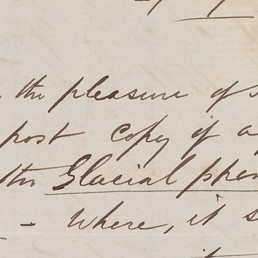 the pleasure of
post copy of a
Glacial phen
- Where, it s